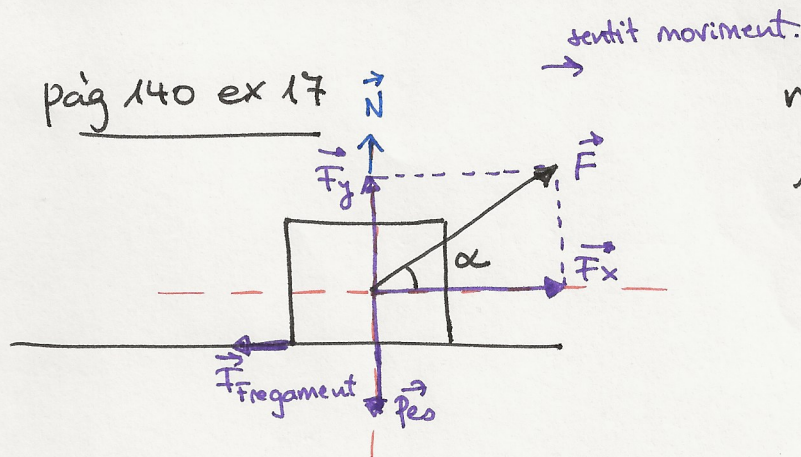 sentit moviment.
pàg 140 ex 17
N
Fy
F
α
Fx
F Fregament
Pes